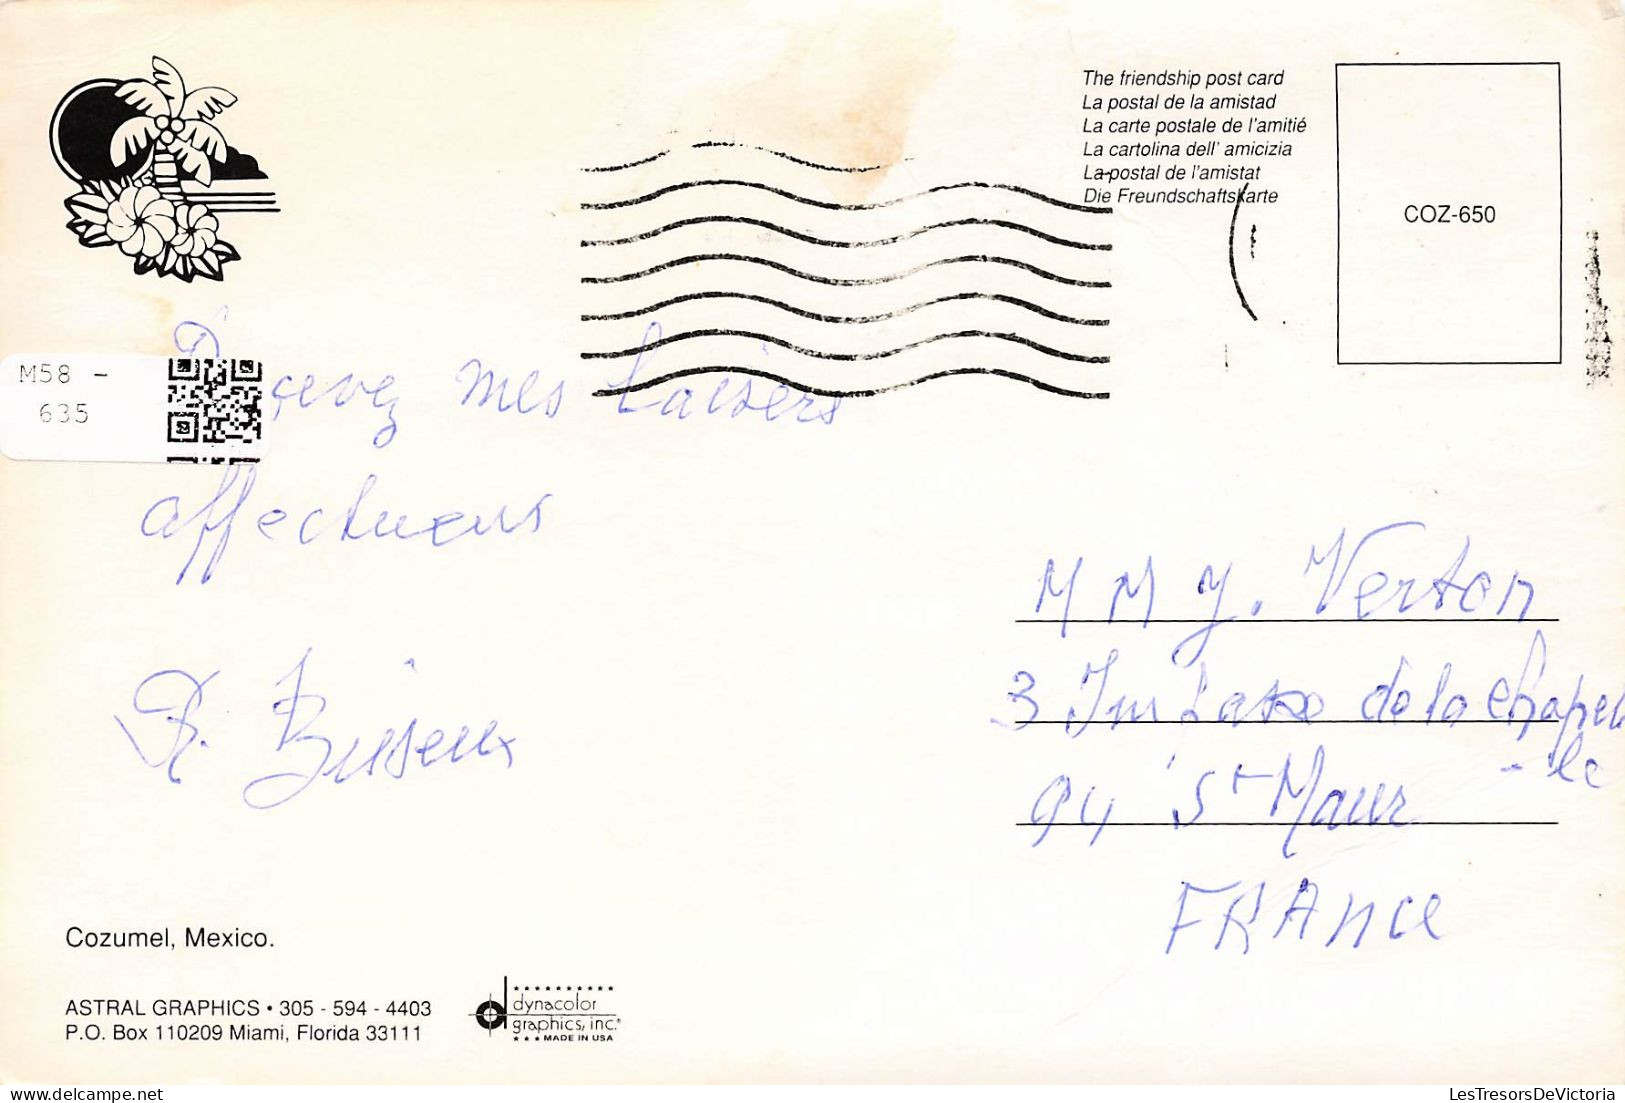 The friendship post card
La postal de la amistad
La carte postale de l'amitié
La cartolina dell' amicizia
La postal de l'amistat
Die Freundschaftskarte
COZ-650
M58 -
635
mes baisers
affectueux
M M Y. Verton
3 Impasse de la Chapel
- le
94 St Maur
FRANCE
Cozumel, Mexico.
ASTRAL GRAPHICS • 305 - 594 - 4403
P.O. Box 110209 Miami, Florida 33111
dynacolor
graphics, inc.®
MADE IN USA
LesTresorsDeVictoria